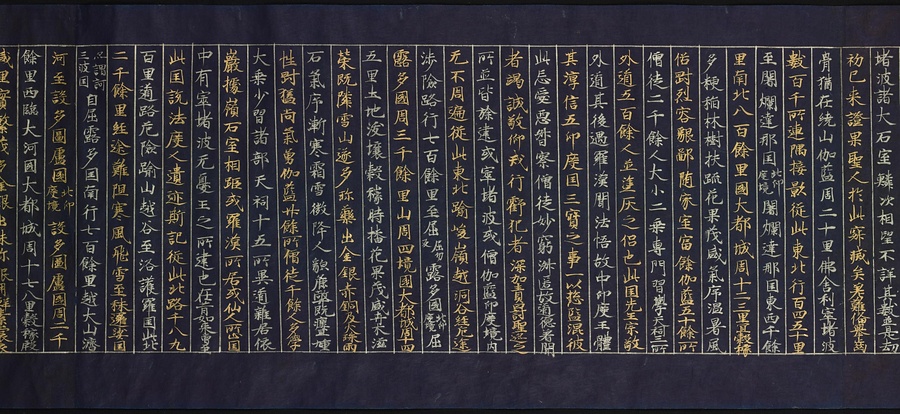 堵波諸大石室鱗次相望不詳其數並是劫
初已來證果聖人於此寂滅差難備舉齒
骨猶在繞山伽藍周二十里佛舍利窣堵波
數百千所連隅接影從此東北行百四五十里
至闍爛達那國北印度境闍爛達那國東西千餘
里南北八百餘里國大都城周十二三里宜穀稼
多粳稻林樹扶疏花果茂盛氣序溫暑風
俗剛烈容貌鄙陋家室富餘伽藍五十餘所
僧徒二千餘人大小二乘專門習學天祠三所
外道五百餘人並塗灰之侶也此国先王崇敬
外道其後遇羅漢聞法悟故中印度王體
其淳信五印度国三寶之事一以捴監混彼
此忘愛惡督察僧徒妙窮淑慝故道德著聞
者竭誠敬仰戒行虧犯者深加責罰聖迹之
所並皆旌建或窣堵波或僧伽藍印度境内
无不周遍從此東北踰峻嶺越洞谷經危途
涉險路行七百餘里至屈露多國北印度境屈
露多國周三千餘里山周四境國大都城周十四
五里土地沃壤穀稼時播花果茂盛卉木滋
榮既隣雪山遂多珎藥出金銀赤銅及火珠雨
石氣序漸寒霜雪微降人貌麁弊既癭且尰
性剛猛尚氣勇伽藍廿餘所僧徒千餘人多學
大乘少習諸部天祠十五所異道雜居依
巖據嶺石室相距或羅漢所居或仙人所止国
中有窣堵波无憂王之所建也在昔如来曾至
此国說法度人遺迹斯記從此北路千八九
百里道路危險踰山越谷至洛護羅国此北
二千餘里經途艱阻寒風飛雪至秣邏娑国
亦謂河三波国自屈露多国南行七百餘里越大山濟
河至設多圖盧國北印度境設多圖盧國周二千
餘里西臨大河國大都城周十七八里穀稼殷